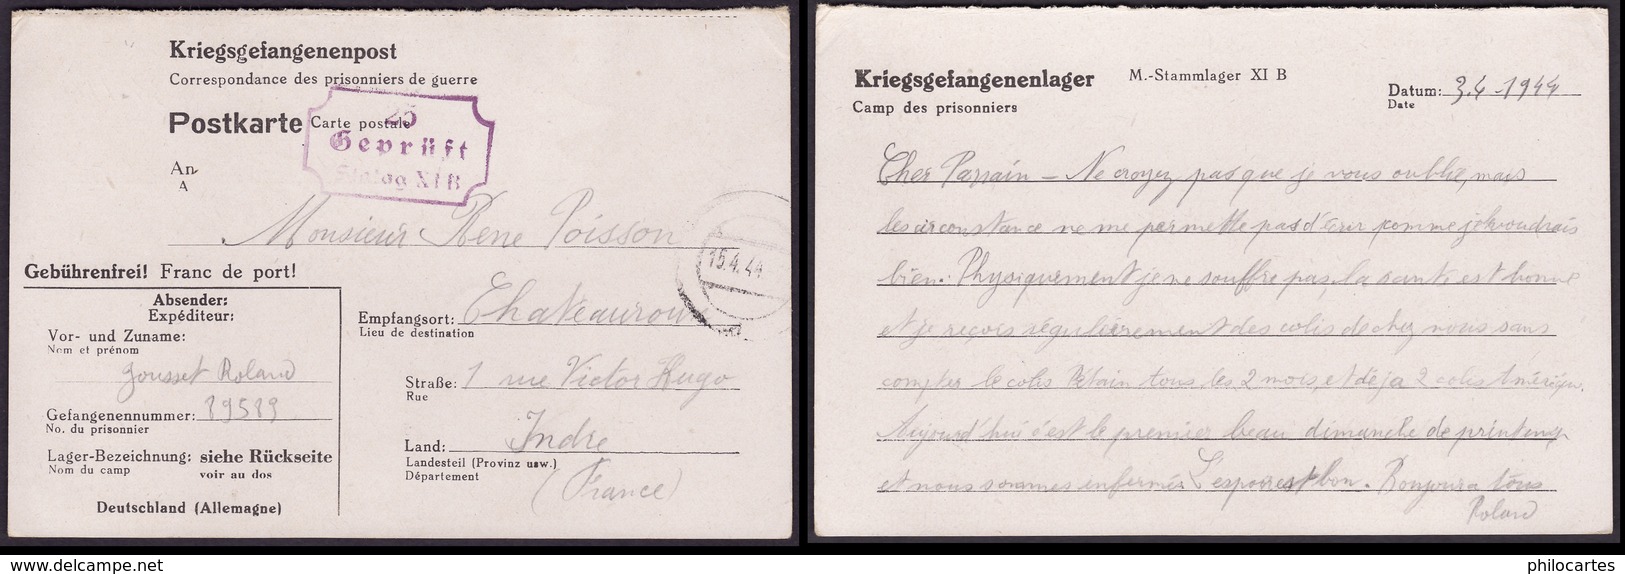 Kriegsgefangenenpost
Correspondance des prisonniers de guerre
Postkarte Carte postale
25
Geprüft
Stalag XI B
An
A
Monsieur Rene Poisson
15.4.44
Gebührenfrei! Franc de port!
Absender:
Expéditeur:
Vor- und Zuname:
Nom et prénom
Jousset Roland
Gefangenennummer: 89589
No. du prisonnier
Lager-Bezeichnung: siehe Rückseite
Nom du camp voir au dos
Deutschland (Allemagne)
Empfangsort: Chateauroux
Lieu de destination
Straße: 1 rue Victor Hugo
Rue
Land: Indre
Landesteil (Provinz usw.)
Département
(France)
Kriegsgefangenenlager M.-Stammlager XI B
Camp des prisonniers
Datum: 3.4-1944
Date
Cher Parrain - Ne croyez pas que je vous oublie, mais
les circonstance ne me permette pas d'écrir comme je le voudrais
bien. Physiquement je ne souffre pas, la santé est bonne
et je reçois régulièrement des colis de chez vous sans
compter le colis Pétain tous les 2 mois, et déja 2 colis
Aujourd'hui c'est le premier beau dimanche de printemps
et nous sommes enfermés. L'espoir est bon. Bonjour a tous
Roland
philocartes